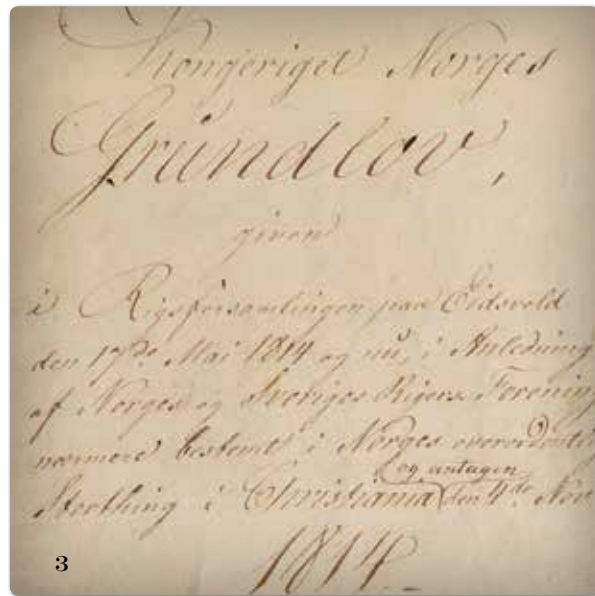 Kongeriget Norges
Grundlov,
given
i Rigsforsamlingen paa Eidsvold
den 17de Mai 1814 og nu, i Anledning
af Norges og Sveriges Rigers Forening
nærmere bestemt i Norges overordentlig
og antagen
Storthing i Christiania den 4de Nov
1814
3